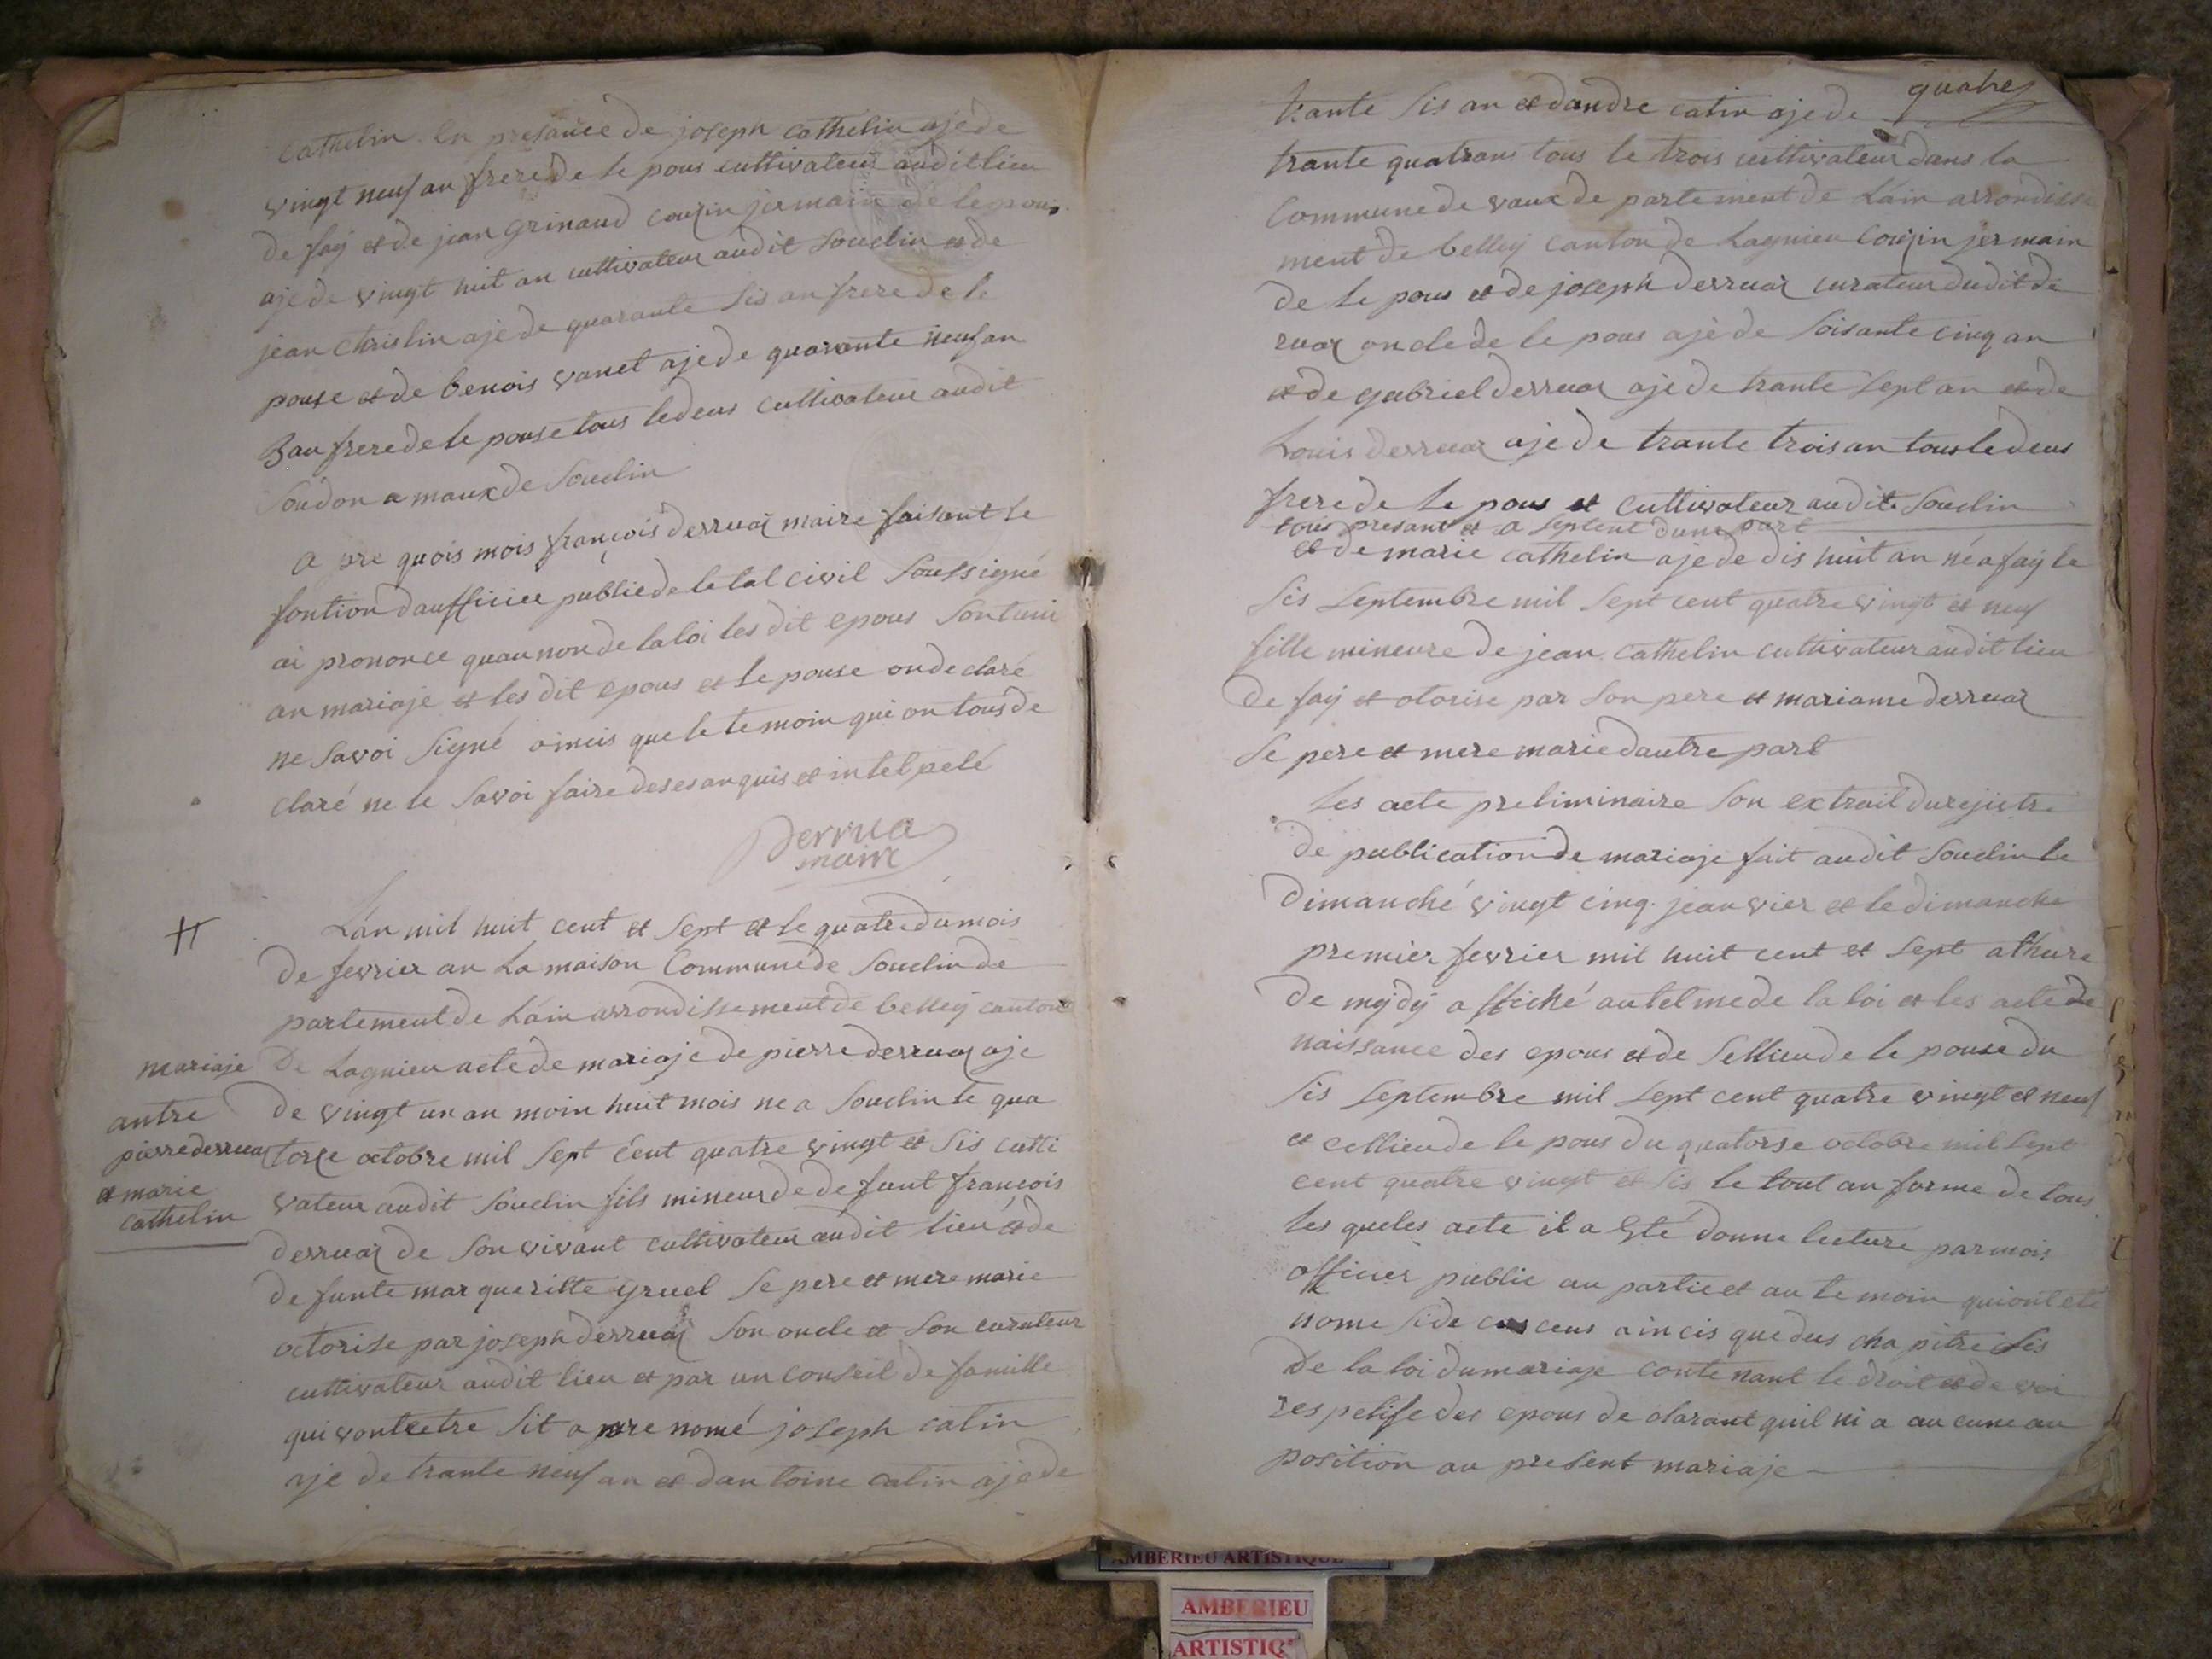 Cathelin. En presance de joseph cathelin aje de
vingt neuf an frere de le pous cultivateur audit lieu
de faÿ et de jean Grinaud couzin jermain de le pous
aje de vingt huit an cultivateur audit Souclin et de
jean Christin aje de quarante sis an frere de le
pouse et de benois vanet aje de quarante neuf an
Bau frere de le pouse tous le deus cultivateur audit
Soudon a maux de Souclin
a pre quois mois françois derruaz maire faisant le
fontion daufficiee publie de le tal civil Soussigné
ai prononce quau non de la loi les dit epous Sont uni
an mariaje et les dit epous et le pouse on de claré
ne Savoi Signé aincis que le temoin qui on tous de
claré ne le Savoi faire de ses anquis et intel pelé
Derrua
maire
Lan mil huit cent et Sept et le quatre du mois
de fevrier an La maison Commune de Souclin de
partement de Lain arrondissement de belleÿ canton
mariaje
De Lagnieu acte de mariaje de pierre derruaz aje
autre
de vingt un an moin huit mois ne a Souclin le qua
pierre derruaz
torze octobre mil Sept Cent quatre vingt et Sis culti
et marie
vateur audit Souclin fils mineur de de funt françois
cathelin
derruaz de Son vivant cultivateur audit lieu et de
de funte marqueritte gruel Se pere et mere marie
otorise par joseph derruaz Son oncle et Son curateur
cultivateur audit lieu et par un Conseil de famille
qui vont etre Sit a pre nomé joseph catin
aje de trante neuf an et dan toine catin aje de
quatre
trante Sis an et dandre catin aje de
trante quatrans tous le trois cultivateur dans la
Commune de vaux de partement de Lain arrondisse
ment de belleÿ canton de Lagnieu Couzin jermain
de le pous et de joseph derruaz curateur dudit de
ruaz oncle de le pous aje de Soisante cinq an
et de gabriel derruaz aje de trante Sept an et de
Louis derruaz aje de trante trois an tous le deus
frere de le pous et cultivateur audit Souclin
tous presant et a Septent dune part
et de marie cathelin aje de dis huit an né a faÿ le
Sis Septembre mil Sept cent quatre vingt et neuf
fille mineure de jean cathelin cultivateur audit lieu
de faÿ et otorise par Son pere et mariane derruaz
Se pere et mere marie dautre part
Les acte preliminaire Son extrait du rejistre
de publication de mariaje fait audit Souclin le
dimanché vingt cinq jeanvier et le dimanche
premier fevrier mil huit cent et Sept a lhure
de mÿdÿ a ffiché au telme de la loi et les acte de
naissance des epous et de Sellieu de le pouse du
Sis Septembre mil Sept cent quatre vingt et neuf
et cellieu de le pous du quatorse octobre mil Sept
cent quatre vingt et Sis le tout an forme de tous
les queles acte il a Eté donne lecture par mois
officier public au partie et au te moin qui ont eté
nome Side ceus aincis que dus cha pitre Sis
de la loi du mariaje contenant le droit et de voi
res petife des epous de clarant quil ni a au cune au
position au present mariaje
AMBERIEU ARTISTIQUE
AMBERIEU
ARTISTIQ